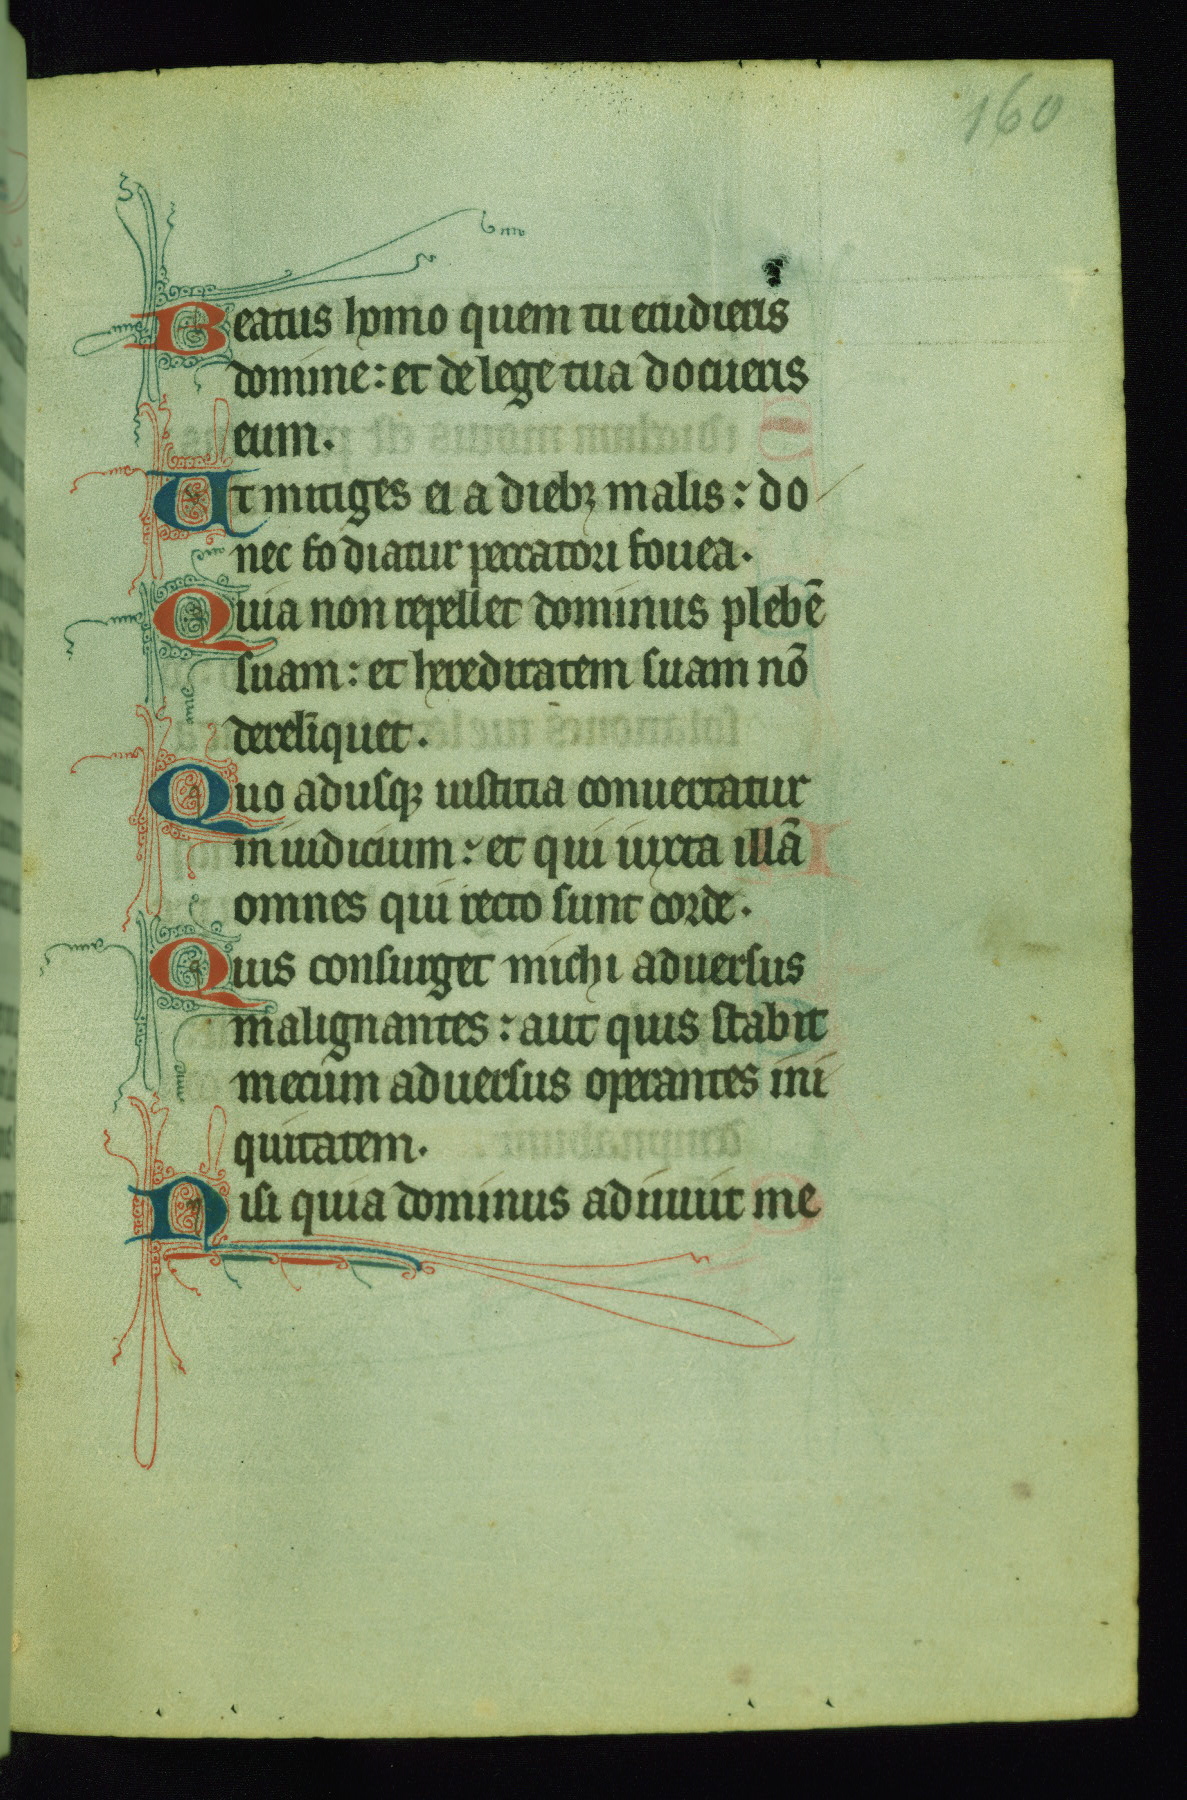 160
Beatus homo quem tu erudieris
domine: et de lege tua docueris
eum.
Ut mitiges ei a diebꝫ malis: do
nec fodiatur peccatori fouea.
Quia non repellet dominus plebē
suam: et hereditatem suam nō
derelīquet.
Quo adusqꝫ iusticia conuertatur
in iudicium: et qui iuxta illā
omnes qui recto sunt corde.
Quis consurget michi aduersus
malignantes: aut quis stabit
mecum aduersus operantes ini
quitatem.
Nisi quia dominus adiuuit me